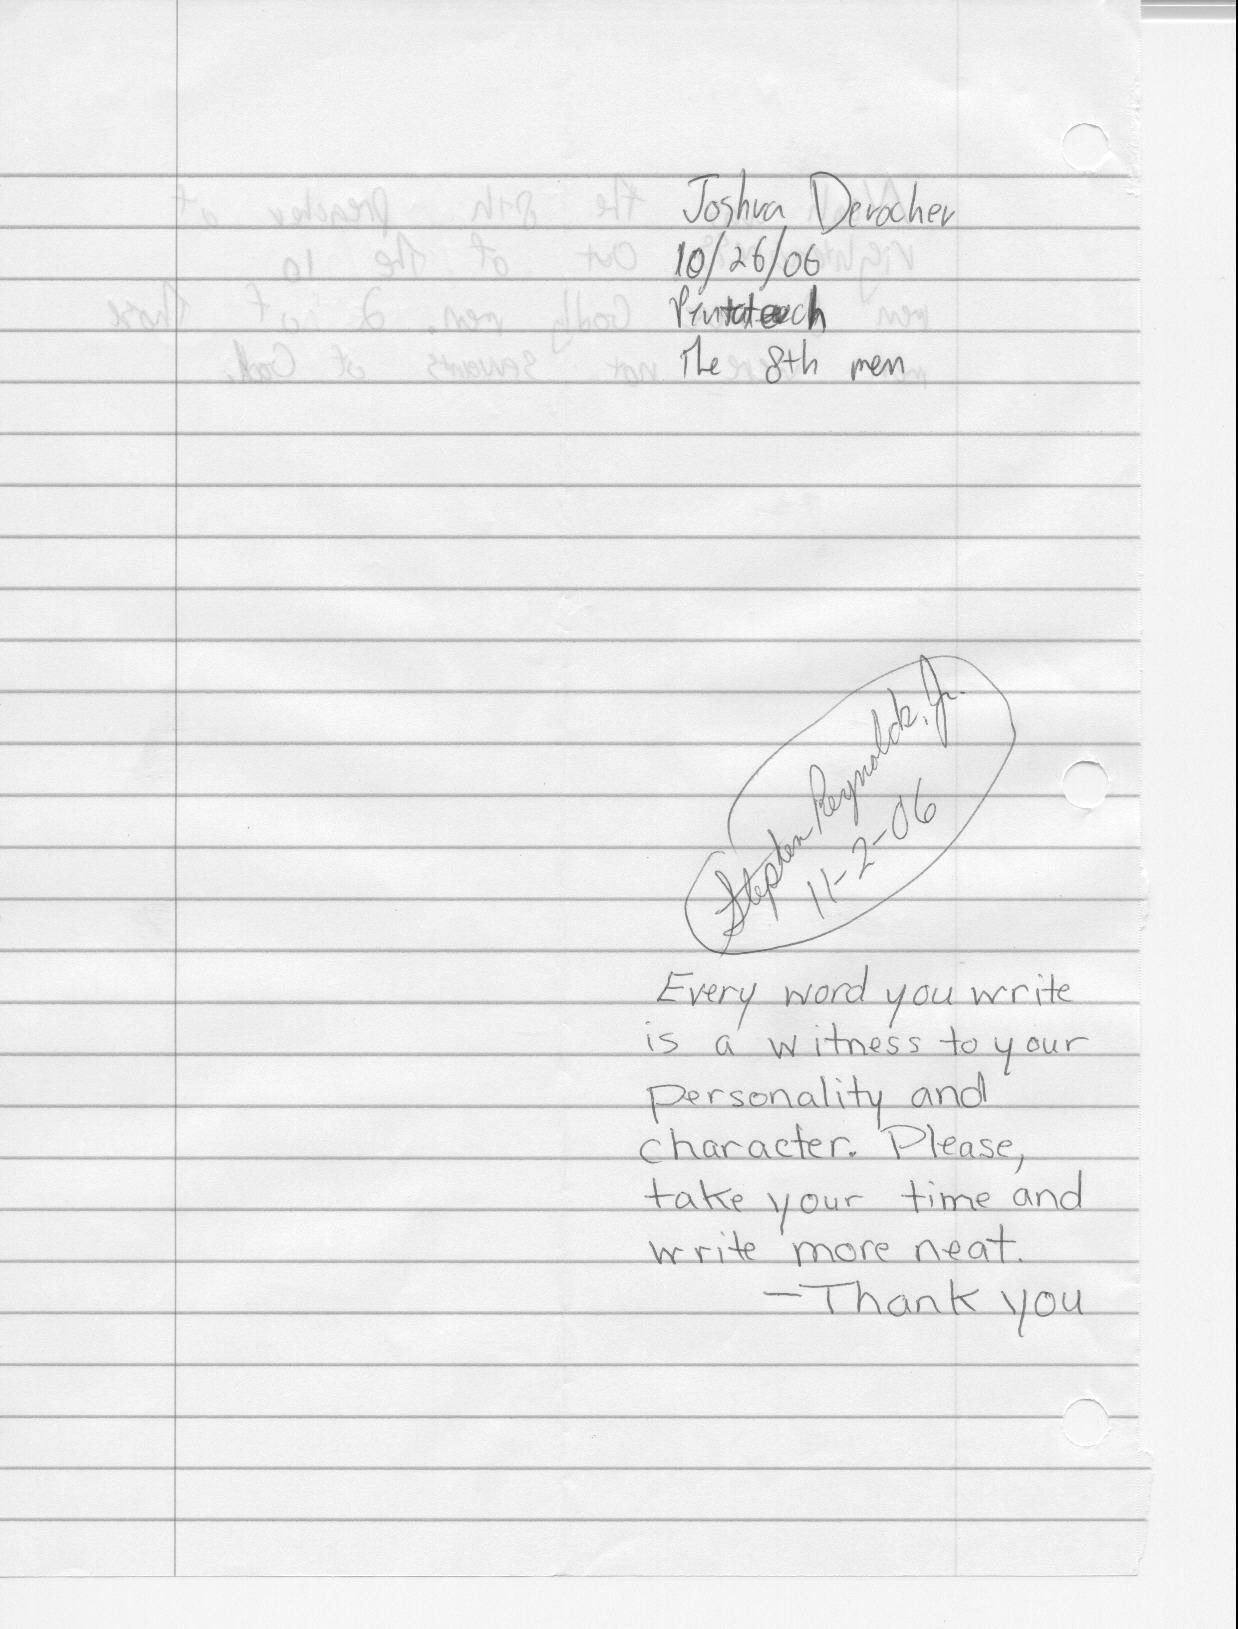 Joshua Derocher
10/26/06
Pentateuch
The 8th men
Stephen Reynolds, Jr.
11-2-06
Every word you write
is a witness to your
personality and
character. Please,
take your time and
write more neat.
-Thank you